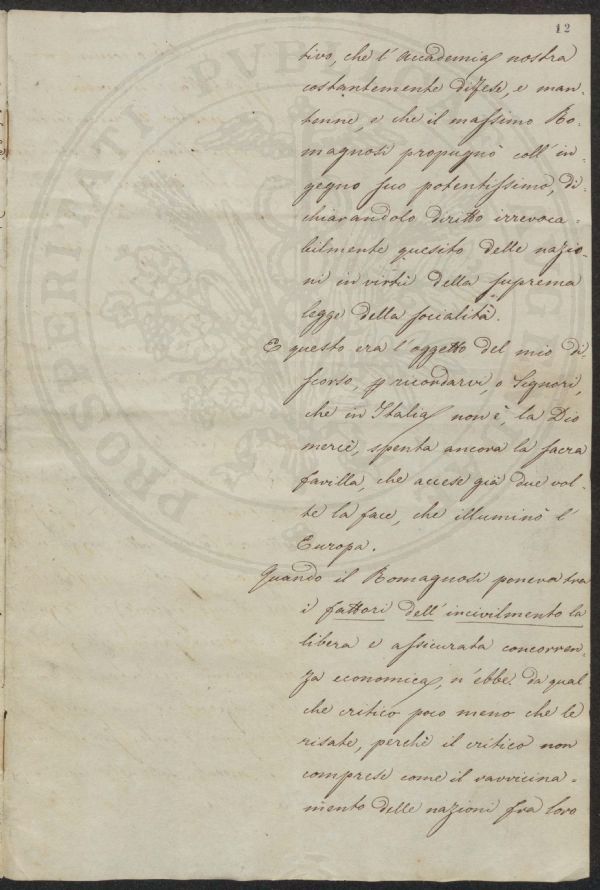 12
tivo, che l'Accademia nostra
costantemente difese, e man-
tenne, e che il massimo Ro-
magnosi propugnò coll'in-
gegno suo potentissimo, di-
chiarandolo diritto irrevoca-
bilmente quesito delle nazio-
ni in virtù della suprema
legge della socialità.
E questo era l'oggetto del mio di-
scorso, p ricordarvi, o Signori,
che in Italia non è, la Dio
mercè, spenta ancora la sacra
favilla, che accese già due vol-
te la face, che illuminò l'
Europa.
Quando il Romagnosi poneva tra
i fattori dell'incivilmento la
libera e assicurata concorren-
za economica, n'ebbe da qual
che critico poco meno che le
risate, perchè il critico non
comprese come il ravvicina-
mento delle nazioni fra loro
PROSPERITATI PVB